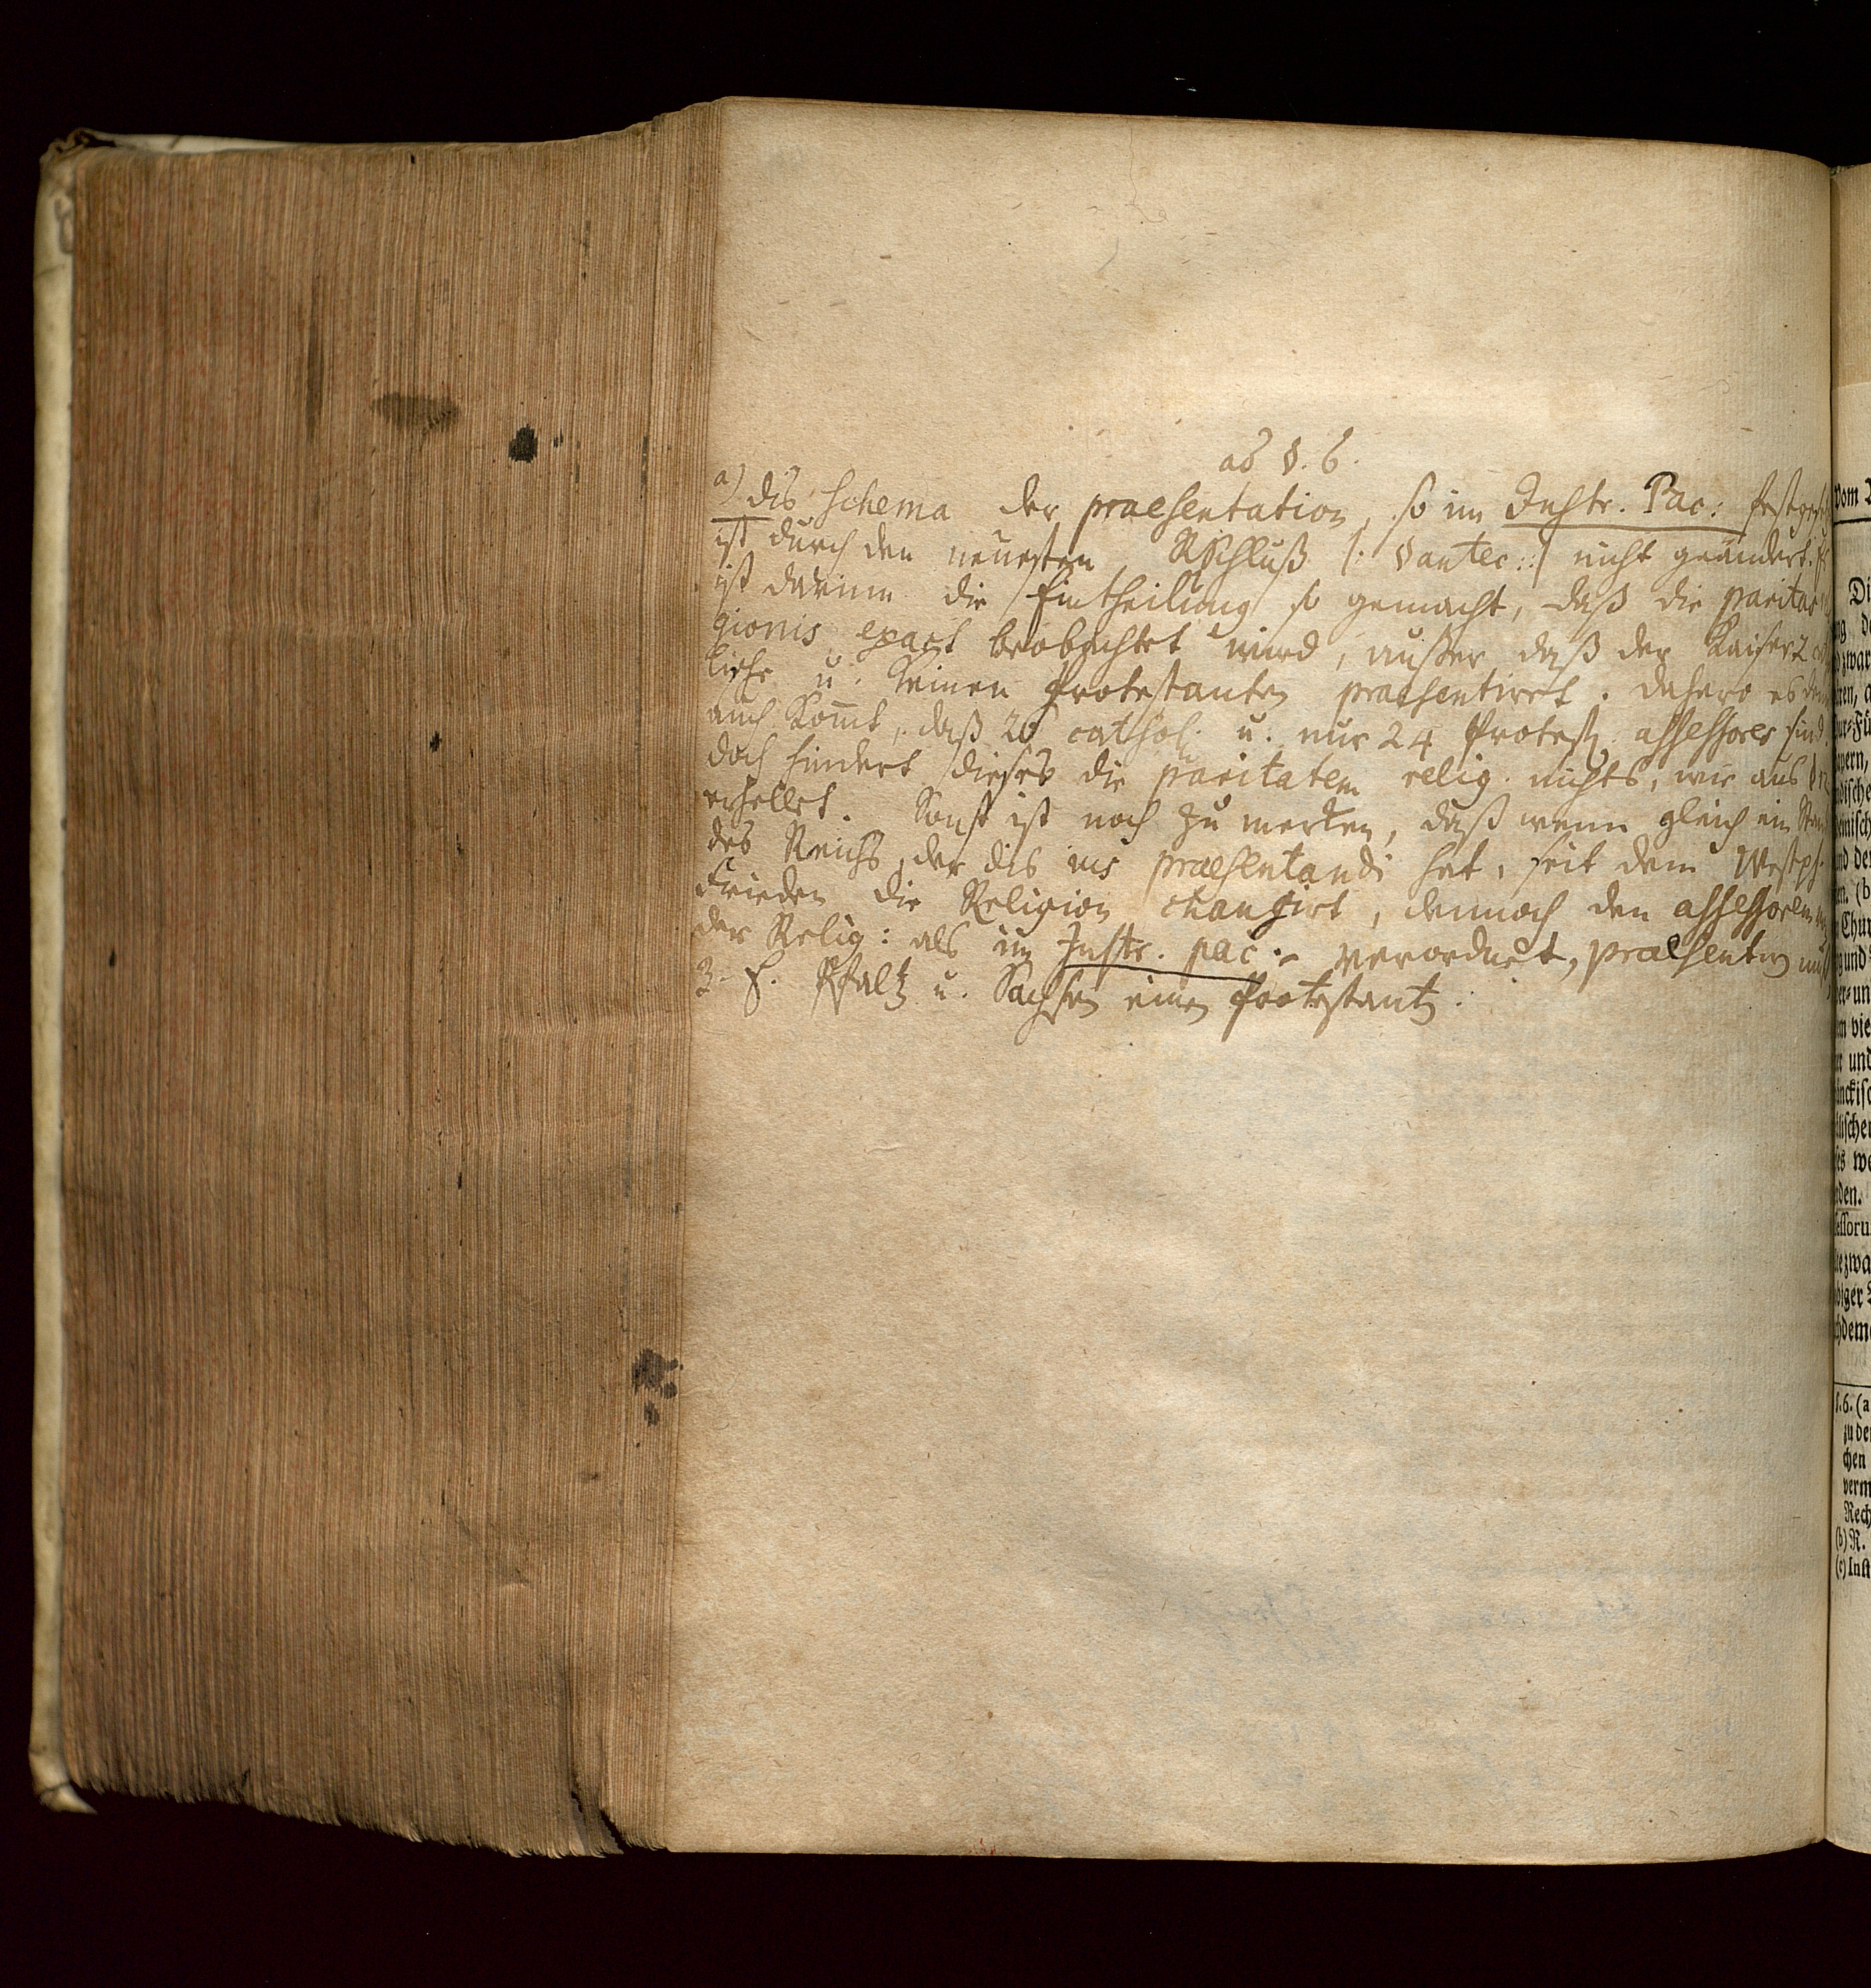 ad §. 6.
a) dis Schema der praesentation, so im Instr. Pac: festges
ist durch den neuesten RSchluß |: § antec: :| nicht geändert.
ist darinn die Eintheilung so gemacht, daß die paritas
gionis exact beobachtet wird, außer daß der Kaiser 2
lische u. keinen Protestanten praesentiret. dahero es
auch kom̄t, daß 26 cathol. u. nur 24 Protest. assessores sind.
doch hindert dieses die paritatem relig. nichts, wie aus
erhellet. Sonst ist noch zu merken, daß wenn gleich ein
des Reichs, der dis ius praesentandi hat, seit dem Westph.
Frieden die Religion changirt, dennoch den assessorem
der Relig: als im Instr. pac: verordnet, praesentiren
Z. E. Pfaltz u. Sachsen einen Protestanten.
vom
Di
zwar
ren,
ur-Fü
und
den.
hdem
§.6.(a
zu de
chen
verm
Rech
(b) R.
(c) Inst